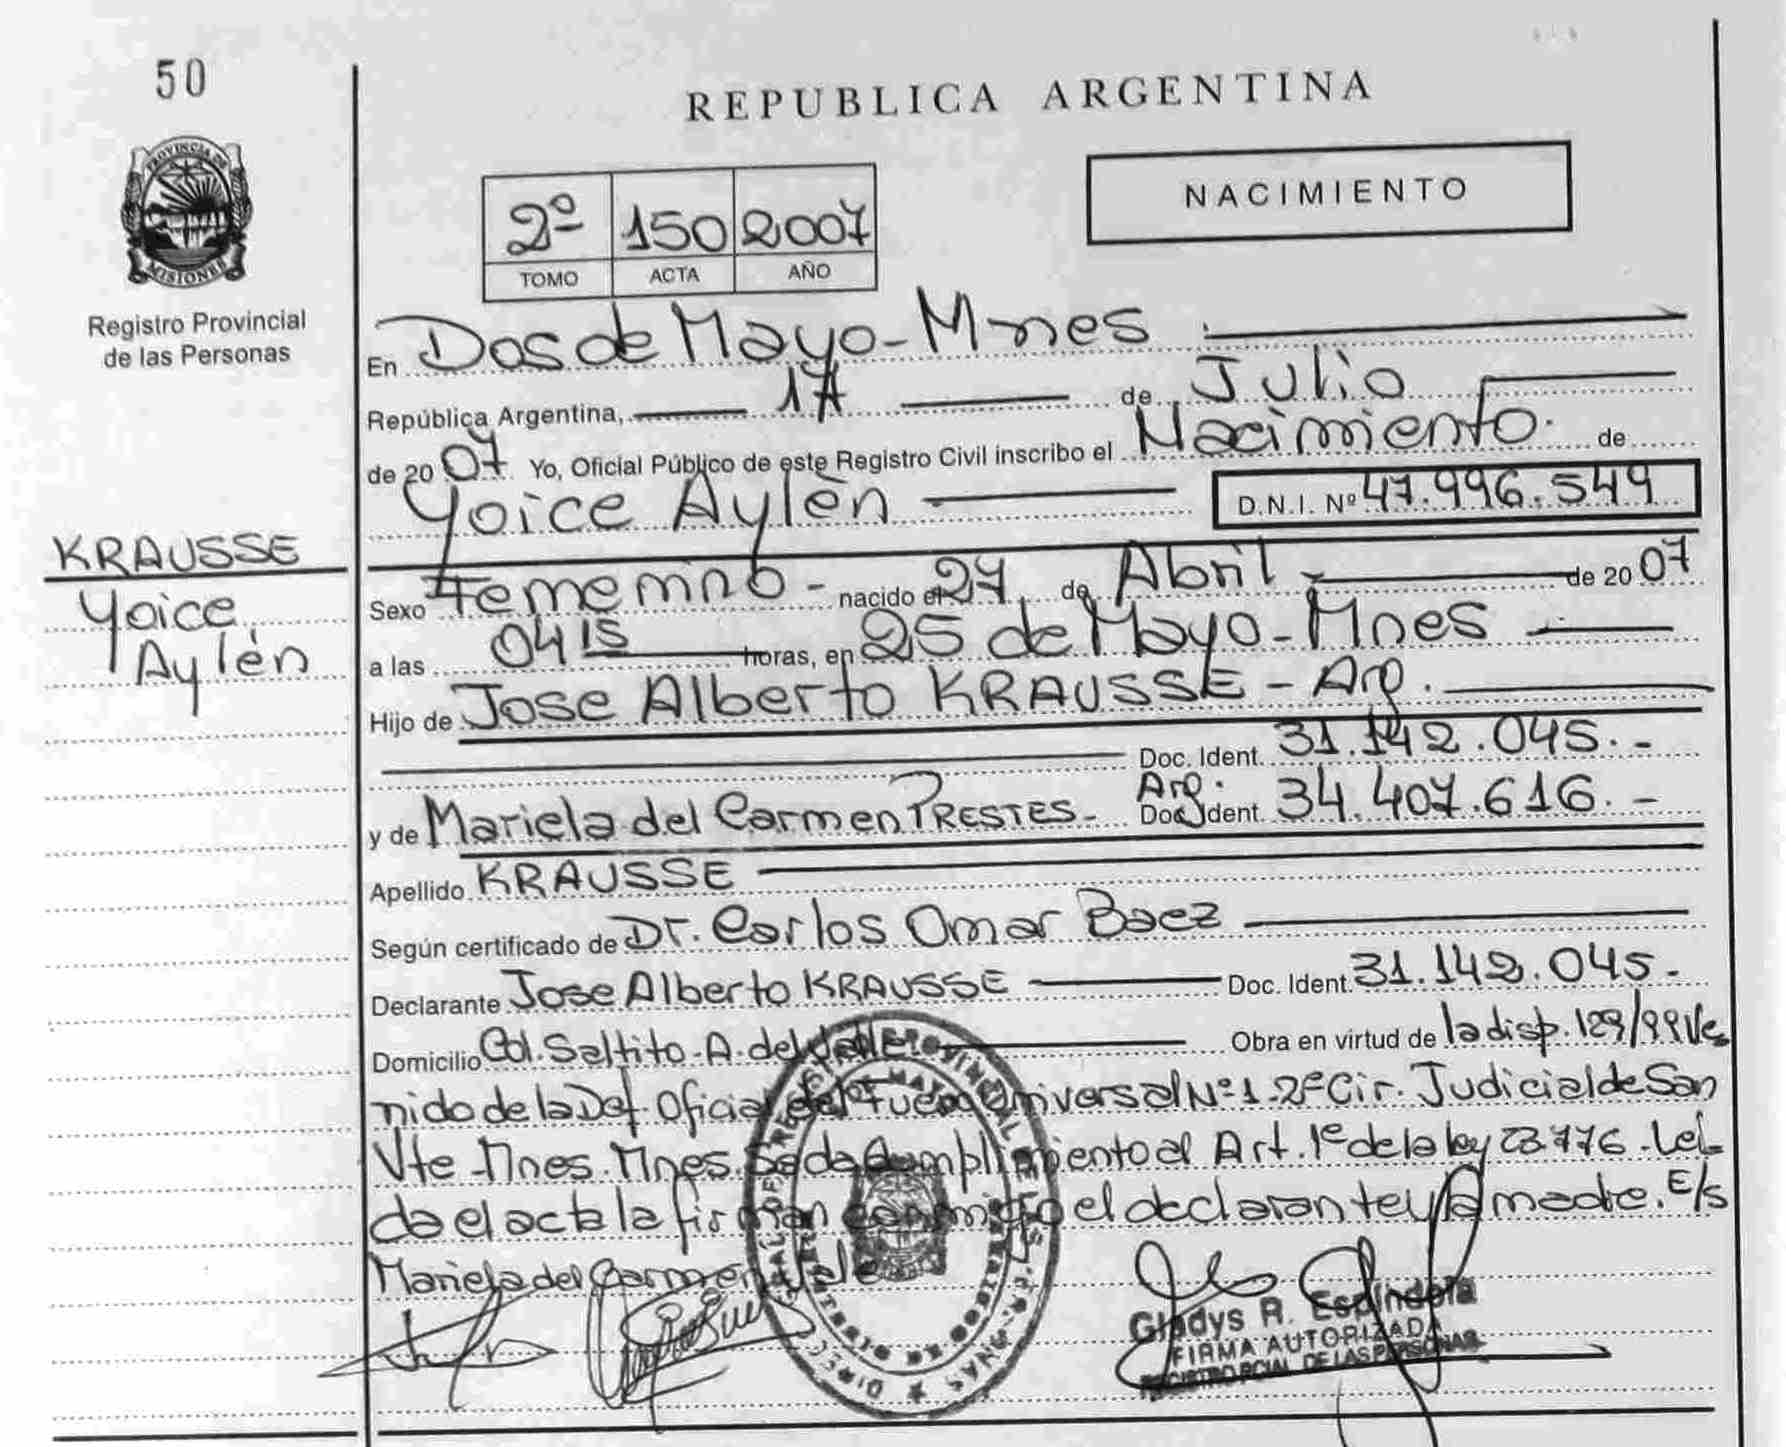 50
REPUBLICA ARGENTINA
PROVINCIA DE
MISIONES
NACIMIENTO
2º 150 2007
TOMO ACTA AÑO
Registro Provincial
de las Personas
En Dos de Mayo - Mnes
República Argentina, 17 de Julio
de 2007 Yo, Oficial Público de este Registro Civil inscribo el Nacimiento de
Yoice Aylèn D.N.I. Nº 47.996.549
KRAUSSE
Yoice
Aylén
Sexo Femenino - nacido el 27 de Abril de 2007
a las 04 15 horas, en 25 de Mayo - Mnes
Hijo de Jose Alberto KRAUSSE - Arg.
Doc. Ident. 31.142.045.-
y de Mariela del Carmen PRESTES - Arg. Doc. Ident. 34.407.616.-
Apellido KRAUSSE
Según certificado de Dr. Carlos Omar Baez
Declarante Jose Alberto KRAUSSE Doc. Ident. 31.142.045.-
Domicilio Col. Saltito - A. del Valle Obra en virtud de la disp. 129/99 Ve
nido de la Def. Oficial del Fuero Universal Nº 1 - 2º Cir. Judicial de San
Vte - Mnes. Mnes. Se da cumplimiento al Art. 1º de la ley 23.776 - Leí-
da el acta la firman conmigo el declarante y la madre. E/s
Mariela del Carmen Vale
Gladys R. Espíndola
FIRMA AUTORIZADA
REGISTRO PCIAL. DE LAS PERSONAS